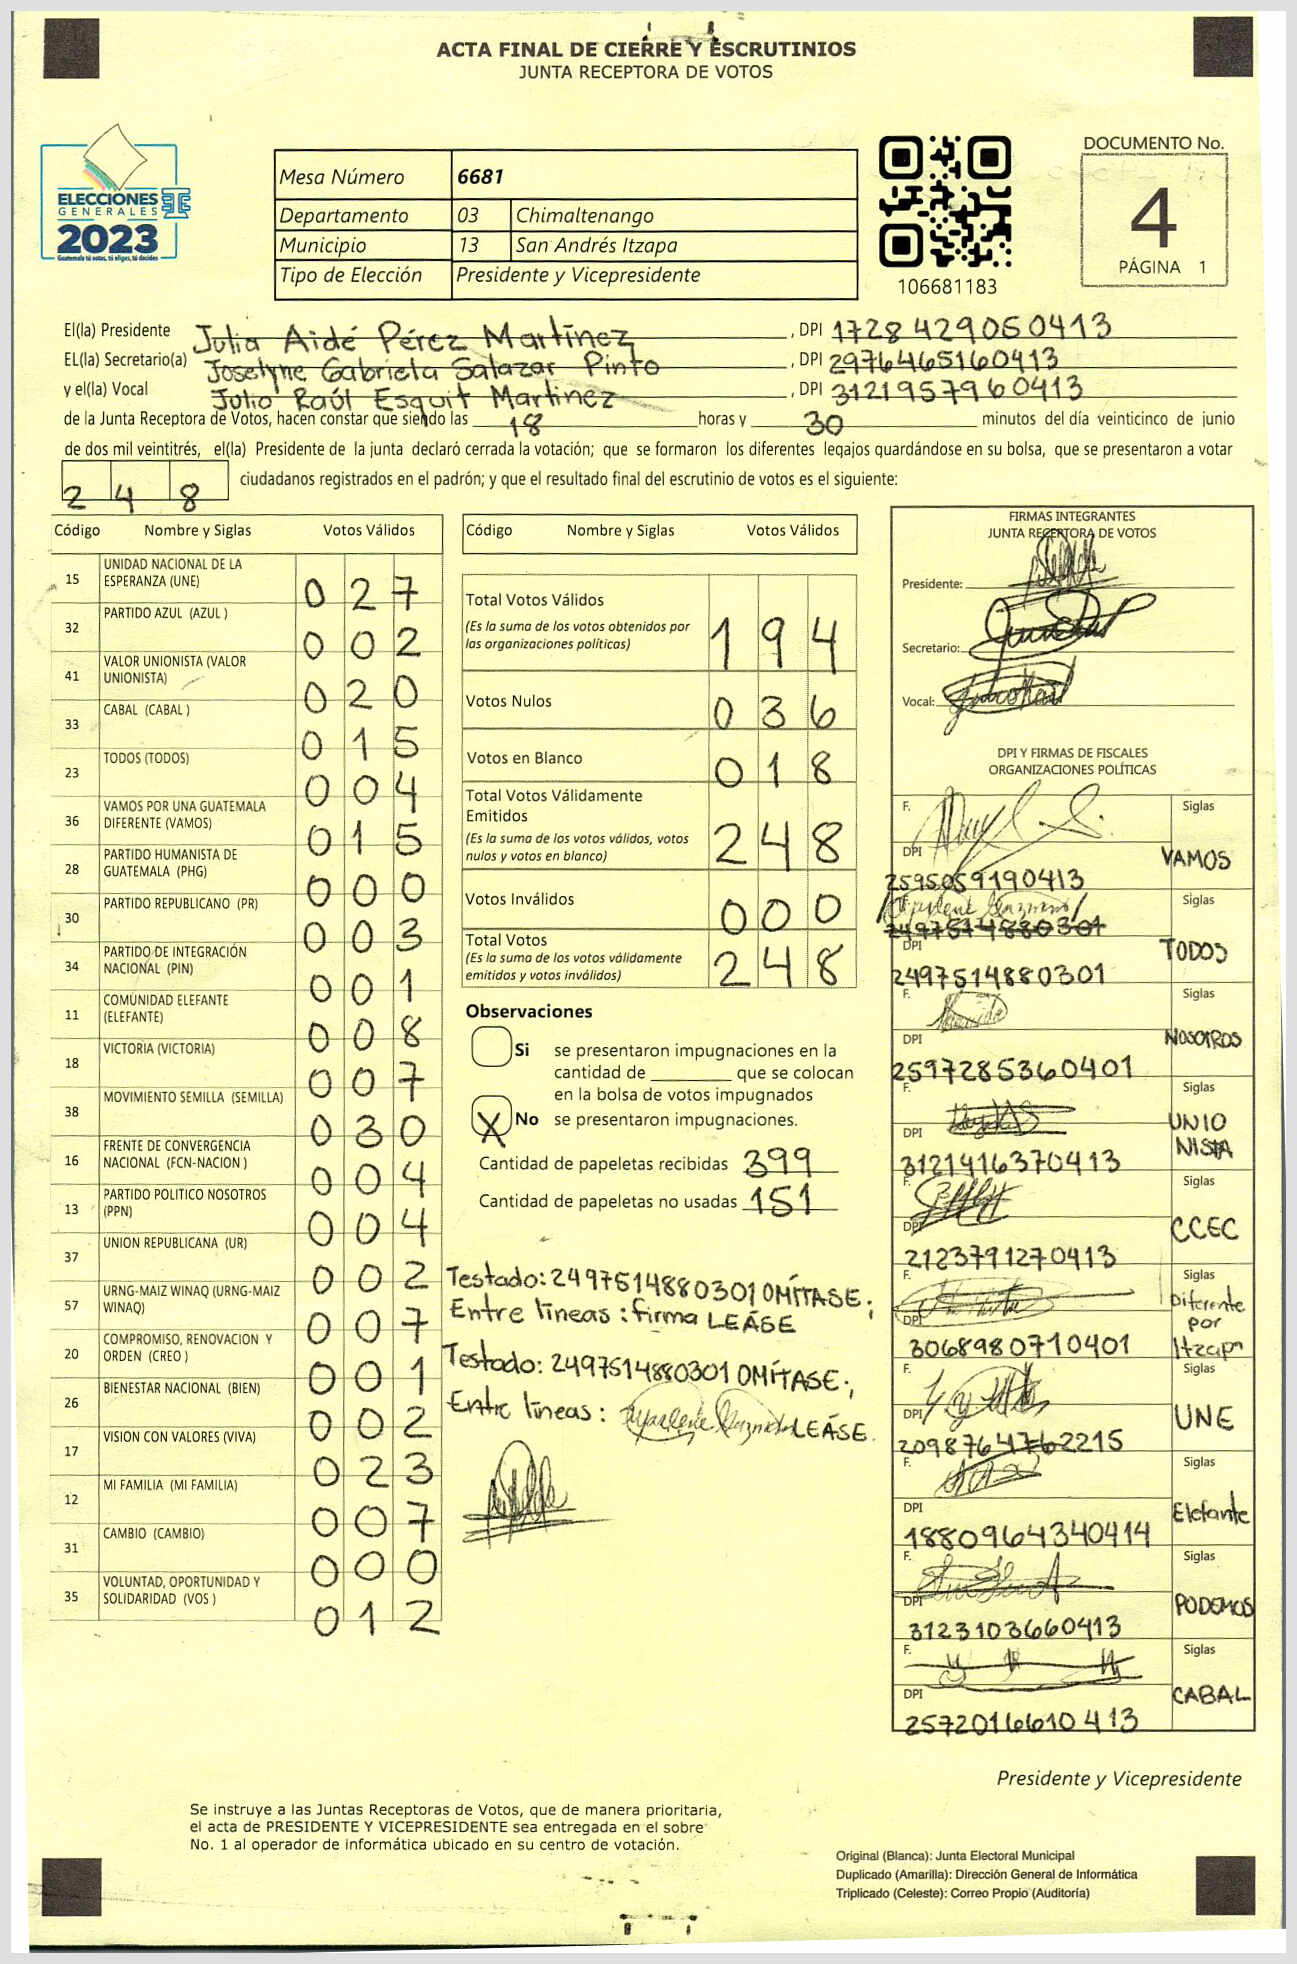 ACTA FINAL DE CIERRE Y ESCRUTINIOS
JUNTA RECEPTORA DE VOTOS
ELECCIONES
GENERALES
2023
Guatemala tú votas, tú eliges, tú decides
Mesa Número 6681
Departamento 03 Chimaltenango
Municipio 13 San Andrés Itzapa
Tipo de Elección Presidente y Vicepresidente
106681183
DOCUMENTO No.
4
PÁGINA 1
El(la) Presidente Julia Aidé Pérez Martínez, DPI 1728429050413
EL(la) Secretario(a) Joselyne Gabriela Salazar Pinto, DPI 2976465160413
y el(la) Vocal Julio Raúl Esquit Martinez, DPI 3121957960413
de la Junta Receptora de Votos, hacen constar que siendo las 18 horas y 30 minutos del día veinticinco de junio
de dos mil veintitrés, el(la) Presidente de la junta declaró cerrada la votación; que se formaron los diferentes legajos guardándose en su bolsa, que se presentaron a votar
248 ciudadanos registrados en el padrón; y que el resultado final del escrutinio de votos es el siguiente:
Código Nombre y Siglas Votos Válidos
15 UNIDAD NACIONAL DE LA ESPERANZA (UNE) 027
32 PARTIDO AZUL (AZUL ) 002
41 VALOR UNIONISTA (VALOR UNIONISTA) 020
33 CABAL (CABAL ) 015
23 TODOS (TODOS) 004
36 VAMOS POR UNA GUATEMALA DIFERENTE (VAMOS) 015
28 PARTIDO HUMANISTA DE GUATEMALA (PHG) 000
30 PARTIDO REPUBLICANO (PR) 003
34 PARTIDO DE INTEGRACIÓN NACIONAL (PIN) 001
11 COMUNIDAD ELEFANTE (ELEFANTE) 008
18 VICTORIA (VICTORIA) 007
38 MOVIMIENTO SEMILLA (SEMILLA) 030
16 FRENTE DE CONVERGENCIA NACIONAL (FCN-NACION ) 004
13 PARTIDO POLITICO NOSOTROS (PPN) 004
37 UNION REPUBLICANA (UR) 002
57 URNG-MAIZ WINAQ (URNG-MAIZ WINAQ) 007
20 COMPROMISO, RENOVACION Y ORDEN (CREO ) 001
26 BIENESTAR NACIONAL (BIEN) 002
17 VISION CON VALORES (VIVA) 023
12 MI FAMILIA (MI FAMILIA) 007
31 CAMBIO (CAMBIO) 000
35 VOLUNTAD, OPORTUNIDAD Y SOLIDARIDAD (VOS ) 012
Código Nombre y Siglas Votos Válidos
Total Votos Válidos 194
(Es la suma de los votos obtenidos por
las organizaciones políticas)
Votos Nulos 036
Votos en Blanco 018
Total Votos Válidamente
Emitidos 248
(Es la suma de los votos válidos, votos
nulos y votos en blanco)
Votos Inválidos 000
Total Votos 248
(Es la suma de los votos válidamente
emitidos y votos inválidos)
Observaciones
Si se presentaron impugnaciones en la
cantidad de ________ que se colocan
en la bolsa de votos impugnados
X No se presentaron impugnaciones.
Cantidad de papeletas recibidas 399
Cantidad de papeletas no usadas 151
Testado: 2497514880301 OMÍTASE;
Entre líneas: firma LEÁSE
Testado: 2497514880301 OMÍTASE;
Entre líneas: LEÁSE.
FIRMAS INTEGRANTES
JUNTA RECEPTORA DE VOTOS
Presidente:
Secretario:
Vocal:
DPI Y FIRMAS DE FISCALES
ORGANIZACIONES POLÍTICAS
F. Siglas
DPI 2595059190413 VAMOS
F. Siglas
2497514880301
DPI 2497514880301 TODOS
F. Siglas
DPI 2597285360401 NOSOTROS
F. Siglas
DPI 3121416370413 UNIO
NISTA
F. Siglas
DPI 2123791270413 CCEC
F. Siglas
DPI 3068980710401 Diferente
por
Itzapa
F. Siglas
DPI 2098764762215 UNE
F. Siglas
DPI 1880964340414 Elefante
F. Siglas
DPI 3123103660413 PODEMOS
F. Siglas
DPI 2572016610413 CABAL
Presidente y Vicepresidente
Se instruye a las Juntas Receptoras de Votos, que de manera prioritaria,
el acta de PRESIDENTE Y VICEPRESIDENTE sea entregada en el sobre
No. 1 al operador de informática ubicado en su centro de votación.
Original (Blanca): Junta Electoral Municipal
Duplicado (Amarilla): Dirección General de Informática
Triplicado (Celeste): Correo Propio (Auditoría)